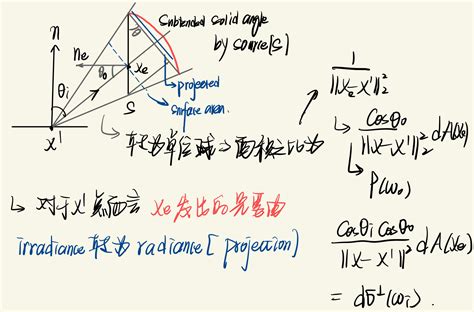 Subtended solid angle
by source(S)
n
n_e
θ
θ_o
x_e
θ_i
projected
surface area.
S
x'
↳ 转为单位球 → 面积比为
1 / ||x_e - x'||²₂
↳ cosθ_o / ||x - x'||²₂ dA(x_e)
↳ P(ω_o)
↳ 对于 x' 点而言 x_e 发出的光要由
irradiance 转为 radiance [projection)
cosθ_i cosθ_o / ||x - x'||²₂ dA(x_e)
= dσ^⊥(ω_i).